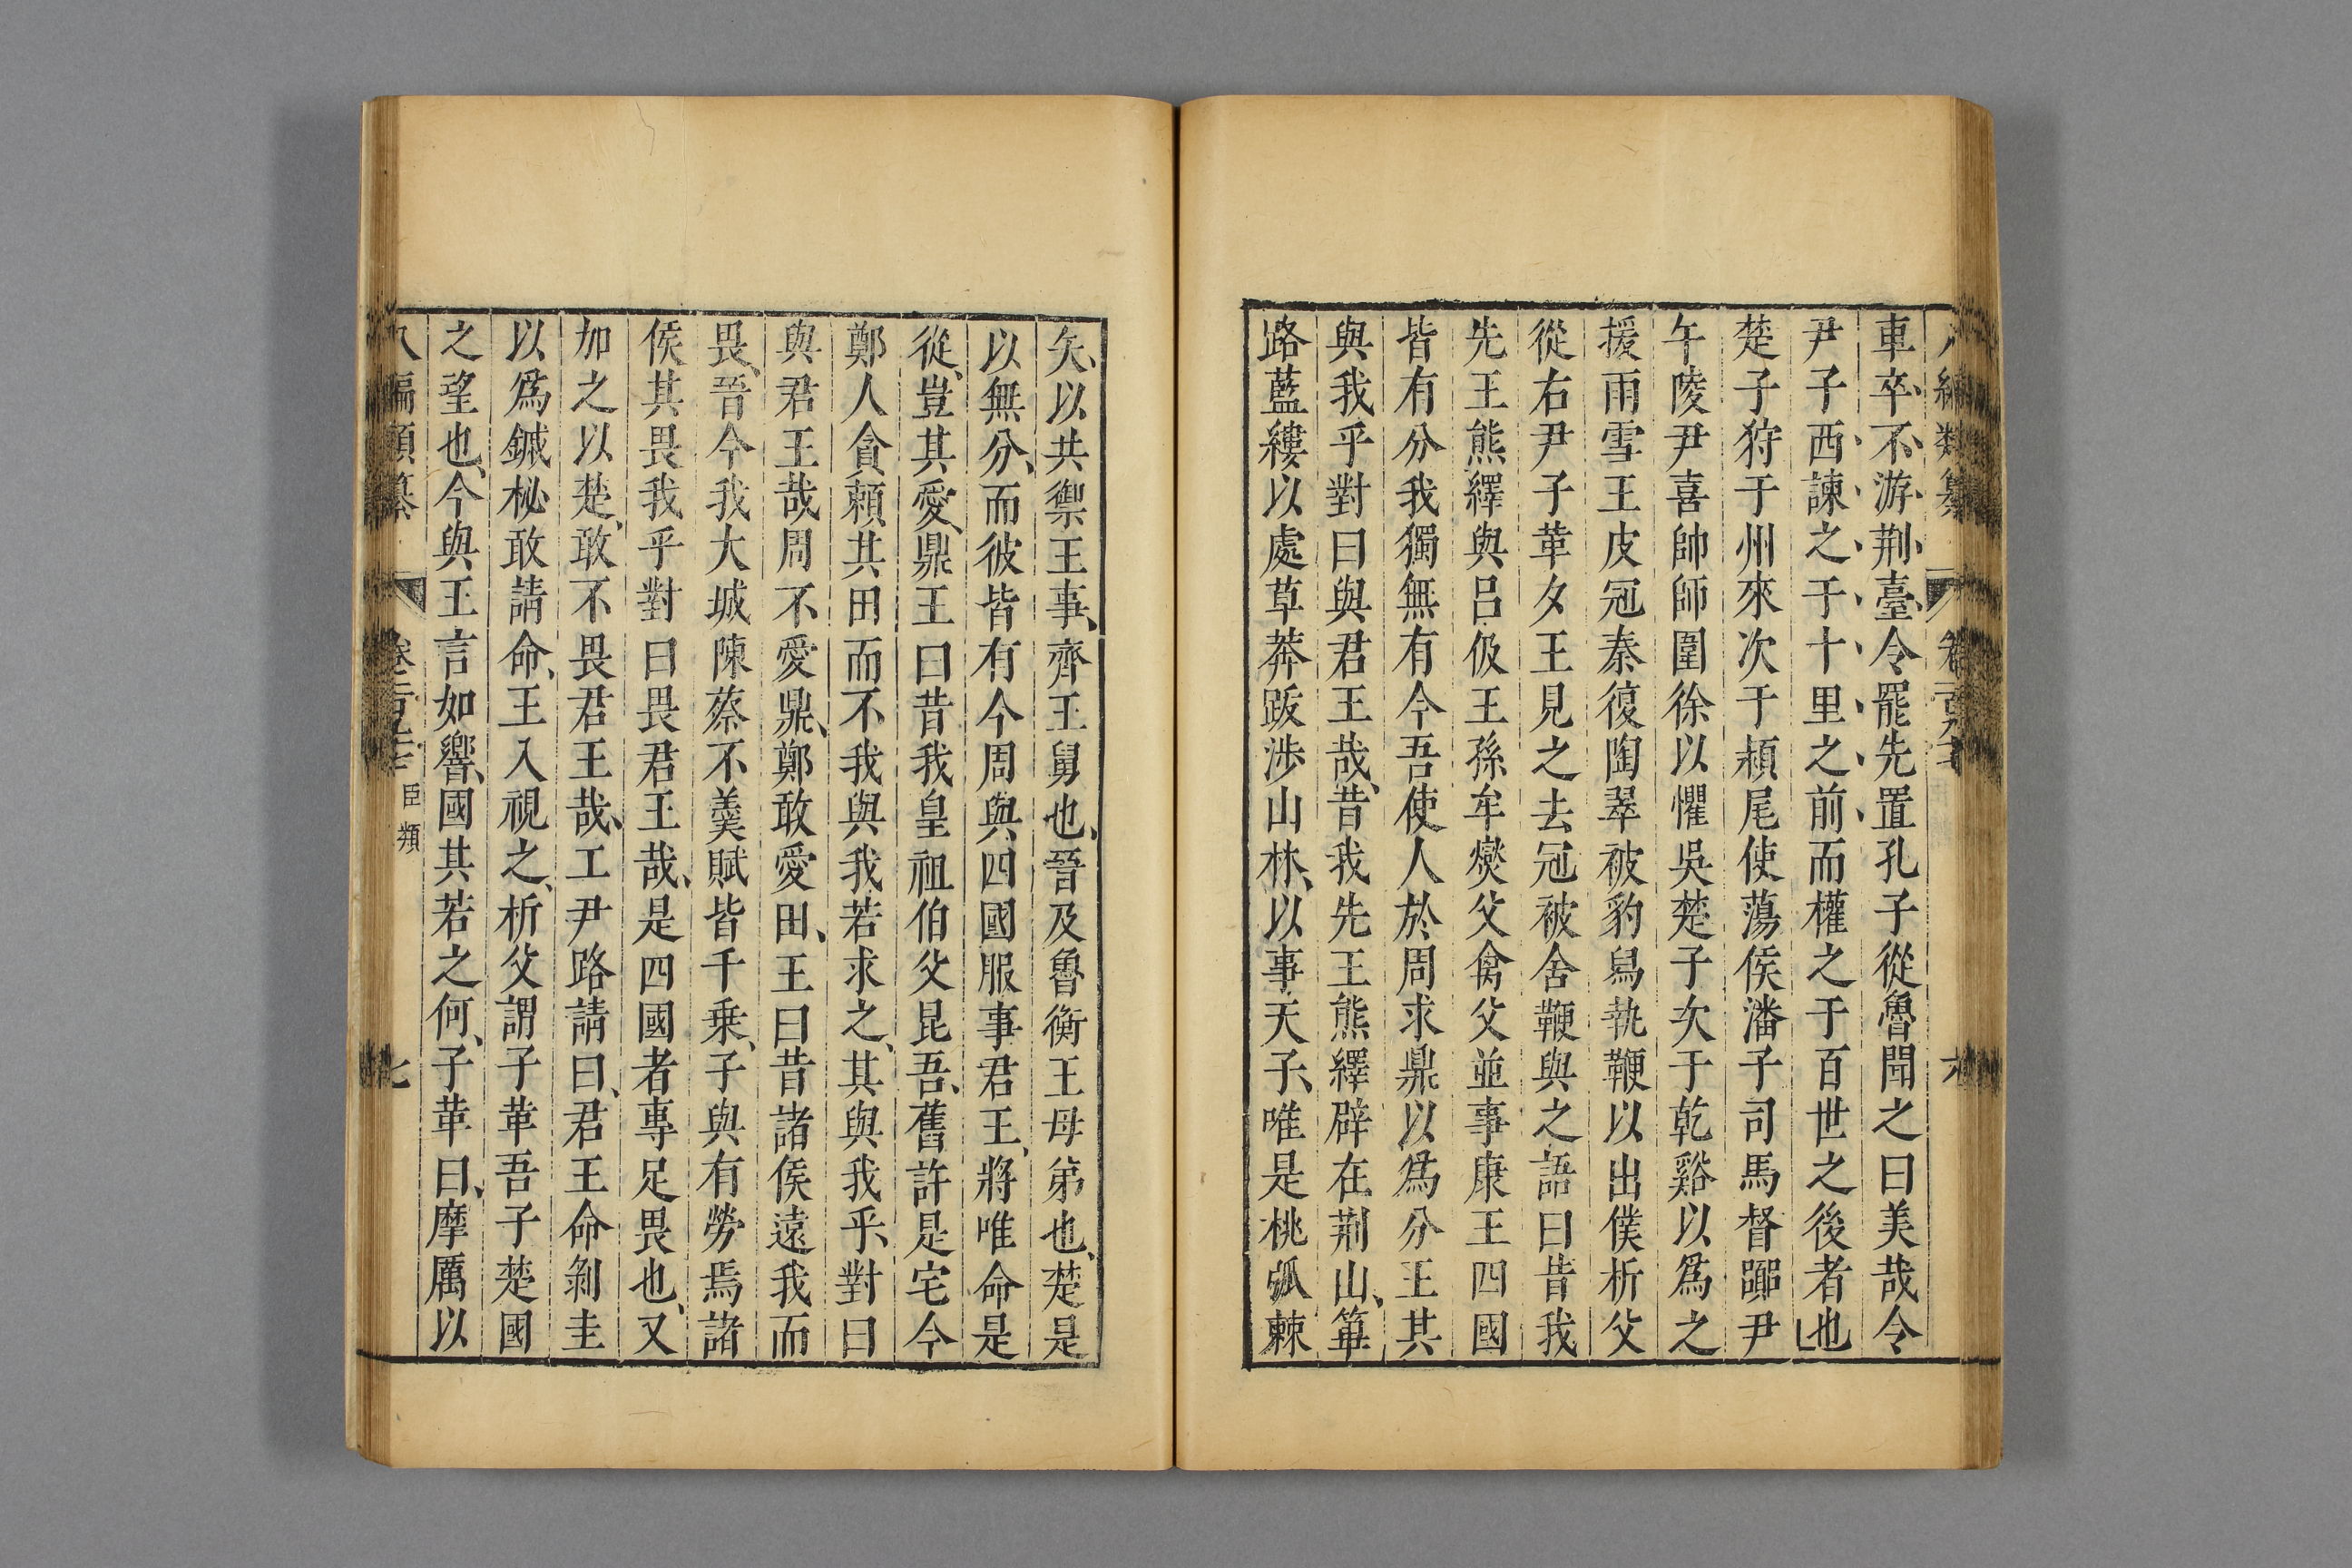 車卒不游荆臺令罷先置孔子從魯聞之曰美哉令
尹子西諫之于十里之前而權之于百世之後者也
楚子狩于州來次于頼尾使蕩侯潘子司馬督嚻尹
午陵尹喜帥師圍徐以懼吳楚子次于乾谿以爲之
援雨雪王皮冠秦復陶翠被豹舄執鞭以出僕析父
從右尹子革夕王見之去冠被舍鞭與之語曰昔我
先王熊繹與呂伋王孫牟爕父禽父並事康王四國
皆有分我獨無有今吾使人於周求鼎以爲分王其
與我乎對曰與君王哉、昔我先王熊繹辟在荆山、篳
路藍縷以處草莽跋涉山林、以事天子、唯是桃弧棘
矢、以共禦王事、齊王舅也、晉及魯衛王母弟也、楚是
以無分、而彼皆有今周與四國服事君王、將唯命是
從、豈其愛鼎王曰昔我皇祖伯父昆吾、舊許是宅今
鄭人貪頼其田而不我與我若求之、其與我乎、對曰
與君王哉周不愛鼎、鄭敢愛田、王曰昔諸侯遠我而
畏、晉今我大城陳蔡不羹賦皆千乗、子與有勞焉諸
侯其畏我乎對曰畏君王哉、是四國者專足畏也、又
加之以楚、敢不畏君王哉、工尹路請曰、君王命剝圭
以爲鏚柲敢請命、王入視之、析父謂子革吾子楚國
之望也、今與王言如響、國其若之何、子革曰、摩厲以
八編類纂 臣類 七